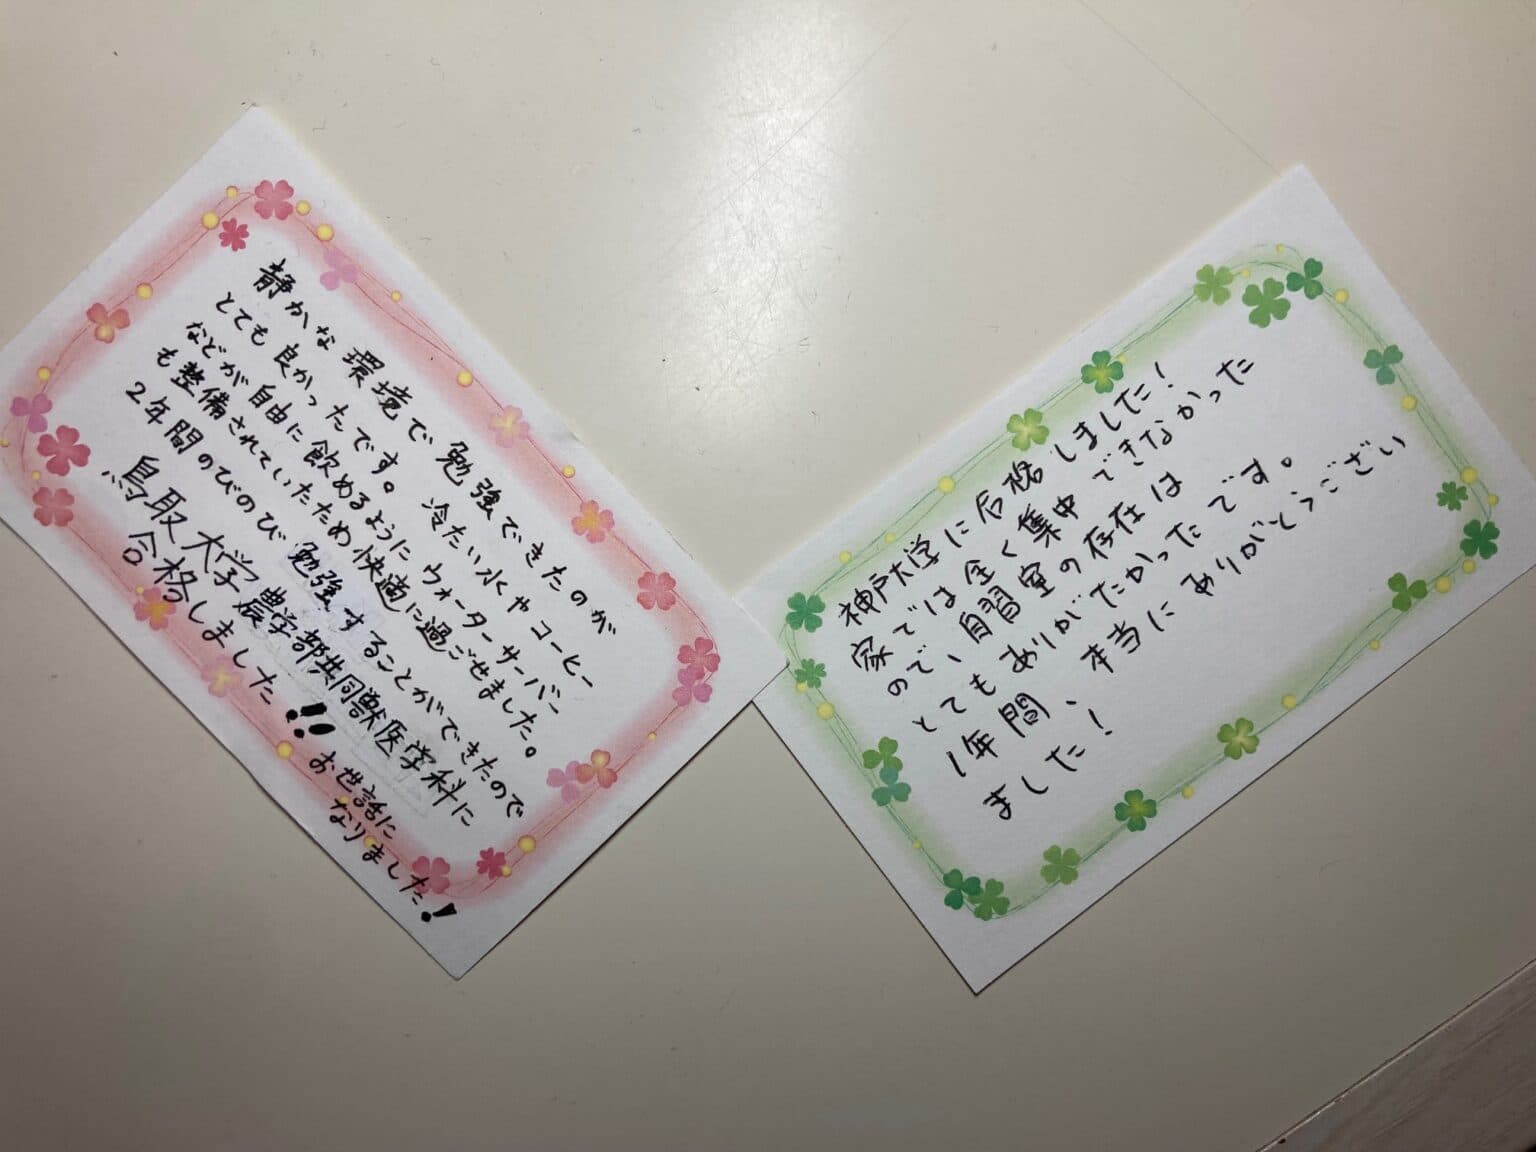 静かな環境で勉強できたのが
とても良かったです。冷たい水やコーヒー
などが自由に飲めるようにウォーターサーバー
も整備されていたため快適に過ごせました。
2年間のびのび勉強することができたので
鳥取大学農学部共同獣医学科に
合格しました!! お世話に
なりました!
神戸大学に合格しました!
家では全く集中できなかった
ので、自習室の存在は
とてもありがたかったです。
1年間、本当にありがとうござい
ました!